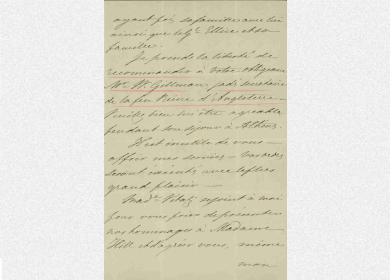 ayant pris sa famille avec lui
ainsi que le Gl. Ellice et sa
famille.
Je prends la liberté de
recommander à votre obligeance
Mr. W. Gillman, jadis secrétaire
de la feu Reine d'Angleterre.
Veuillez bien lui être agréable
pendant son séjour à Athènes.
Il est inutile de vous
offrir mes services – vos ordres
seront exécutés avec le plus
grand plaisir –
Made. Vitali se joint à moi
pour vous prier de présenter
nos hommages à Madame
Hill et d'agréer vous, même
mon